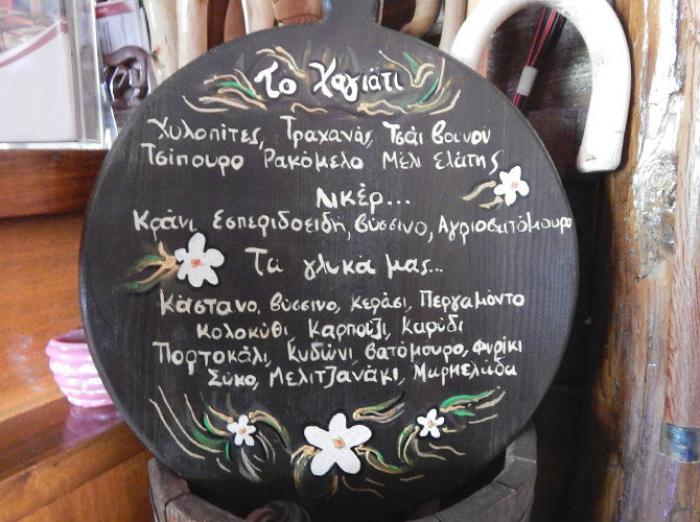 Το Χαγιάτι
Χυλοπίτες, Τραχανάς, Τσάι βουνού
Τσίπουρο Ρακόμελο Μέλι Ελάτης
Λικέρ...
Κράνι, Εσπεριδοειδή, βύσσινο, Αγριοβατόμουρο
Τα γλυκά μας...
Κάστανο, βύσσινο, κεράσι, Περγαμόντο
Κολοκύθι Καρπούζι, Καρύδι
Πορτοκάλι, Κυδώνι, βατόμουρο, φιρίκι
Σύκο, Μελιτζανάκι, Μαρμελάδα